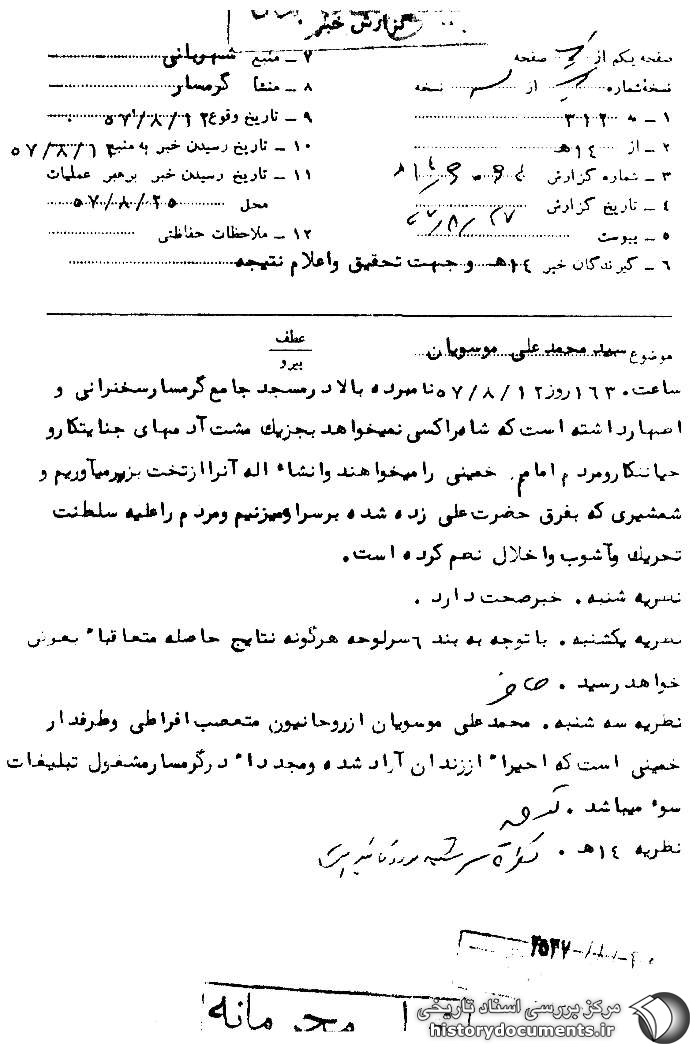 گزارش خبر
صفحه یکم از یک صفحه
نسخه شماره از نسخه
۱ – به ۳۱۲
۲ – از ۱۴هـ
۳ – شماره گزارش
۴ – تاریخ گزارش ۵۷/۸/۲۷
۵ – پیوست
۶ – گیرندگان خبر ۱۴هـ و جهت تحقیق واعلام نتیجه
۷ – منبع شهربانی
۸ – منشأ گرمسار
۹ – تاریخ وقوع ۵۷/۸/۱۲
۱۰ – تاریخ رسیدن خبر به منبع ۵۷/۸/۱۲
۱۱ – تاریخ رسیدن خبر برهبر عملیات
محل ۵۷/۸/۲۵
۱۲ – ملاحظات حفاظتی
موضوع سید محمد علی موسویان
عطف
پیرو
ساعت ۱۶۳۰ روز ۵۷/۸/۱۲ نامبرده بالا در مسجد جامع گرمسار سخنرانی و
اظهار داشته است که شاه را کسی نمیخواهد بجز یک مشت آدمهای جنایتکار و
خیانتکار و مردم امام خمینی را میخواهند وانشاء اله آنرا از تخت بزیر میآوریم و
شمشیری که بفرق حضرت علی زده شده برسر او میزنیم ومردم را علیه سلطنت
تحریک وآشوب واخلال نظم کرده است.
نظریه شنبه. خبر صحت دارد.
نظریه یکشنبه. با توجه به بند ۶ سرلوحه هرگونه نتایج حاصله متعاقباً بعرض
خواهد رسید.
نظریه سه شنبه. محمد علی موسویان از روحانیون متعصب افراطی وطرفدار
خمینی است که اخیراً از زندان آزاد شده ومجدداً در گرمسار مشغول تبلیغات
سوء میباشد.
نظریه ۱۴هـ. نظریه سه شنبه مورد تأیید است
۲۵۳۷
محرمانه
مرکز بررسی اسناد تاریخی
historydocuments.ir